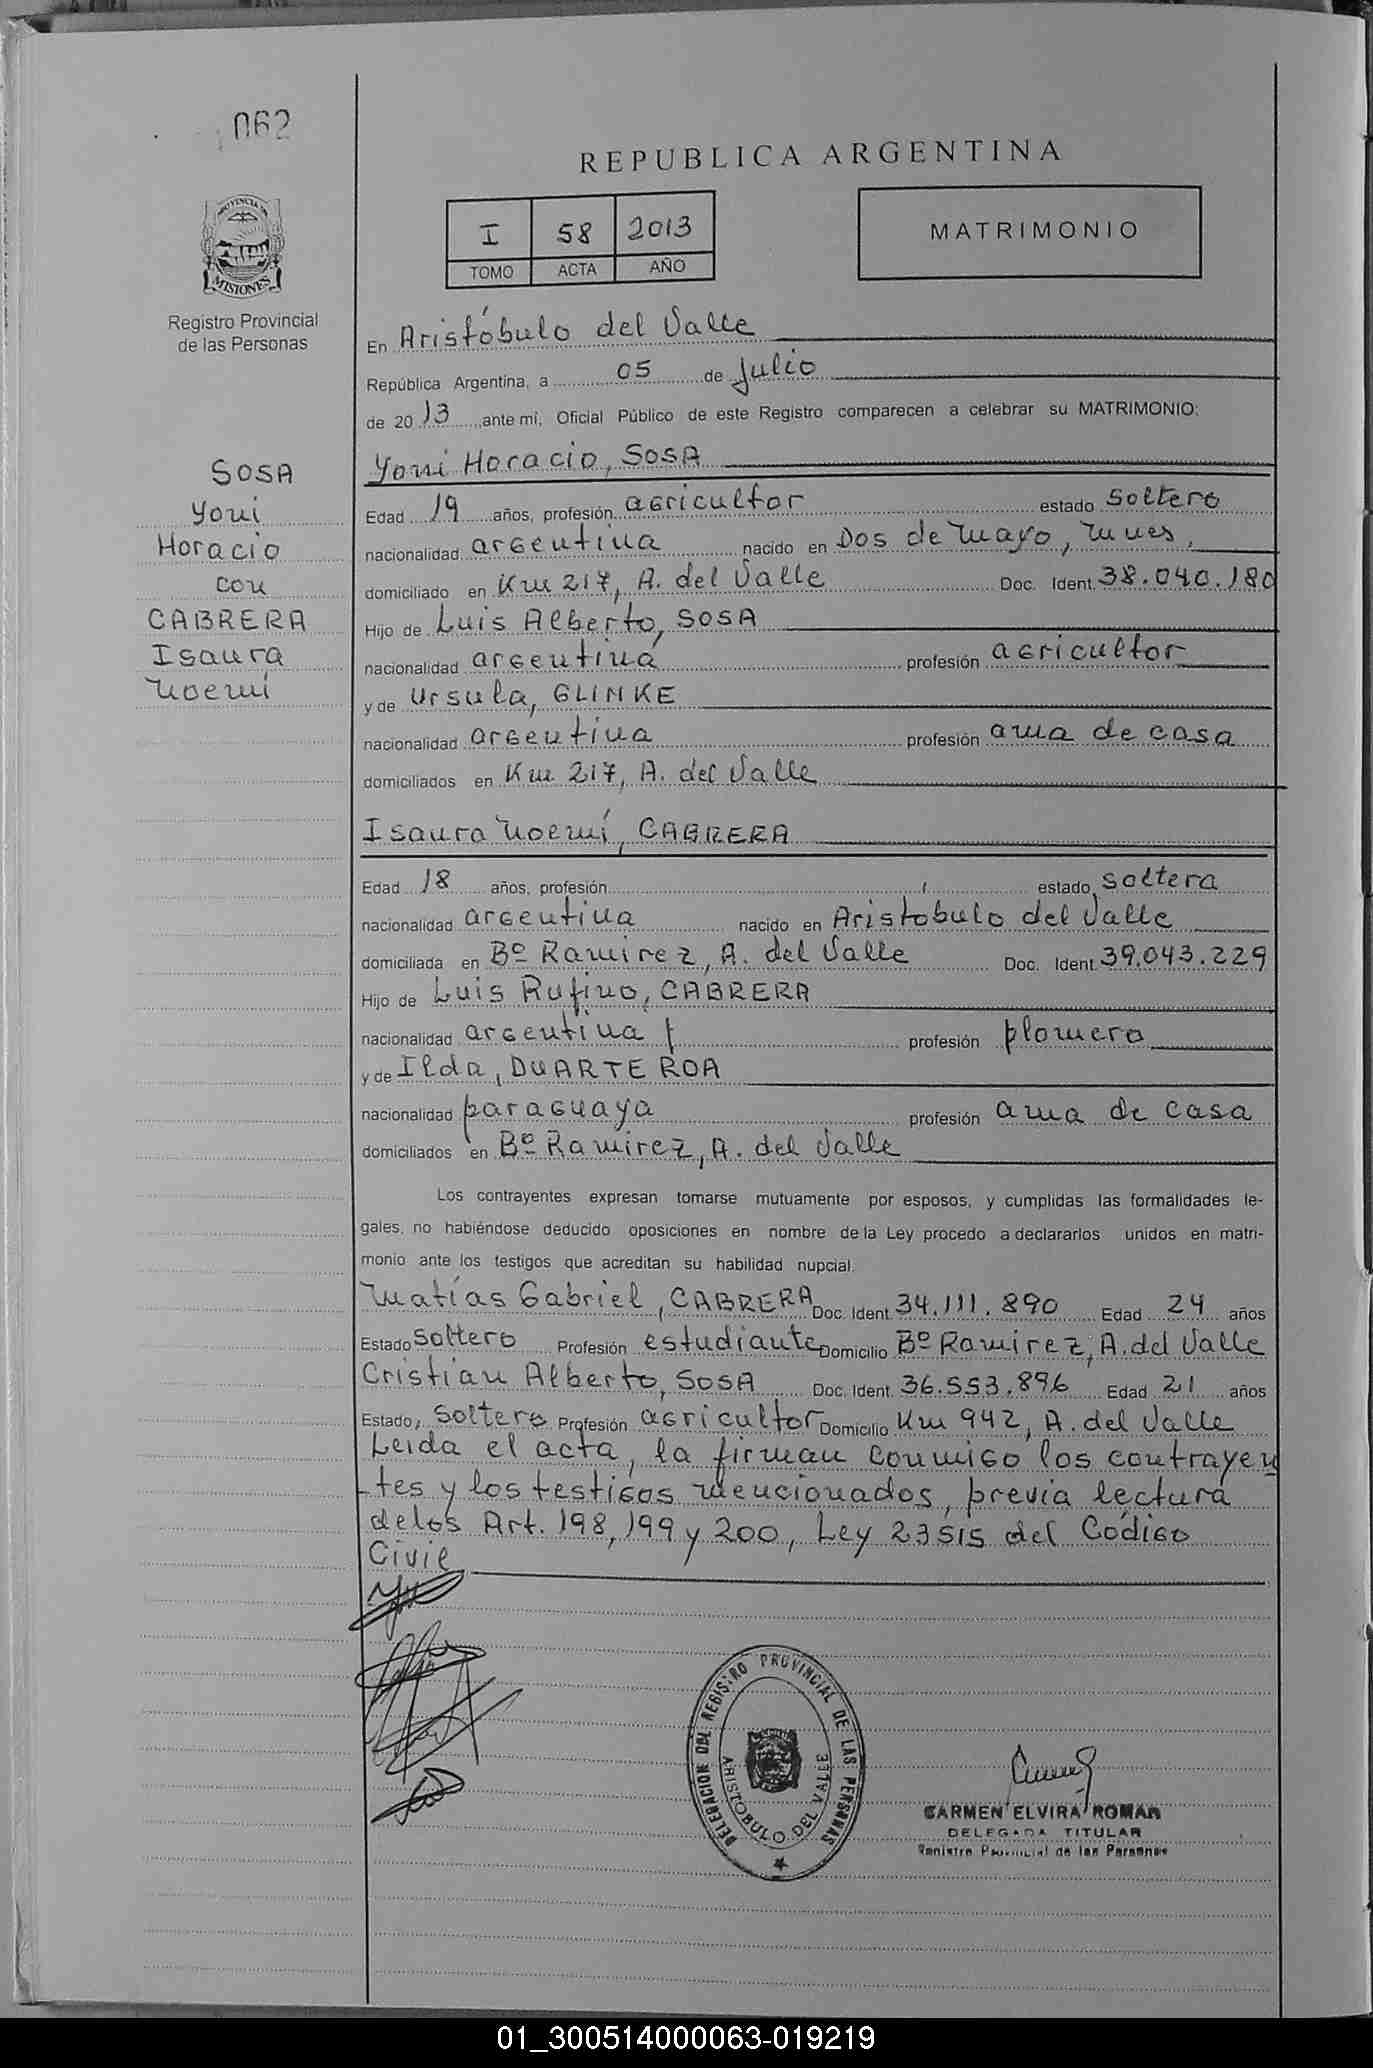 062
REPUBLICA ARGENTINA
I 58 2013
TOMO ACTA AÑO
MATRIMONIO
PROVINCIA DE
MISIONES
Registro Provincial
de las Personas
En Aristóbulo del Valle
República Argentina, a 05 de Julio
de 2013 ante mi, Oficial Público de este Registro comparecen a celebrar su MATRIMONIO:
SOSA
Yoni
Horacio
con
CABRERA
Isaura
Noemí
Yoni Horacio, SOSA
Edad 19 años, profesión agricultor estado soltero
nacionalidad argentina nacido en Dos de Mayo, Mnes,
domiciliado en Km 217, A. del Valle Doc. Ident. 38.040.180
Hijo de Luis Alberto, SOSA
nacionalidad argentina profesión agricultor
y de Ursula, GLINKE
nacionalidad argentina profesión ama de casa
domiciliados en Km 217, A. del Valle
Isaura Noemí, CABRERA
Edad 18 años, profesión estado soltera
nacionalidad argentina nacido en Aristobulo del Valle
domiciliada en Bº Ramirez, A. del Valle Doc. Ident. 39.043.229
Hijo de Luis Rufino, CABRERA
nacionalidad argentina profesión plomero
y de Ilda, DUARTE ROA
nacionalidad paraguaya profesión ama de casa
domiciliados en Bº Ramirez, A. del Valle
Los contrayentes expresan tomarse mutuamente por esposos, y cumplidas las formalidades le-
gales, no habiéndose deducido oposiciones en nombre de la Ley procedo a declararlos unidos en matri-
monio ante los testigos que acreditan su habilidad nupcial.
Matías Gabriel, CABRERA Doc. Ident. 34.111.890 Edad 24 años
Estado soltero Profesión estudiante Domicilio Bº Ramirez, A. del Valle
Cristian Alberto, SOSA Doc. Ident. 36.553.896 Edad 21 años
Estado, soltero Profesión agricultor Domicilio Km 942, A. del Valle
Leida el acta, la firman conmigo los contrayen
tes y los testigos mencionados, previa lectura
delos Art. 198, 199 y 200, Ley 23515 del Código
Civil
DELEGACION DEL REGISTRO PROVINCIAL DE LAS PERSONAS
ARISTOBULO DEL VALLE
CARMEN ELVIRA ROMAN
DELEGADA TITULAR
Registro Provincial de las Personas
01_300514000063-019219